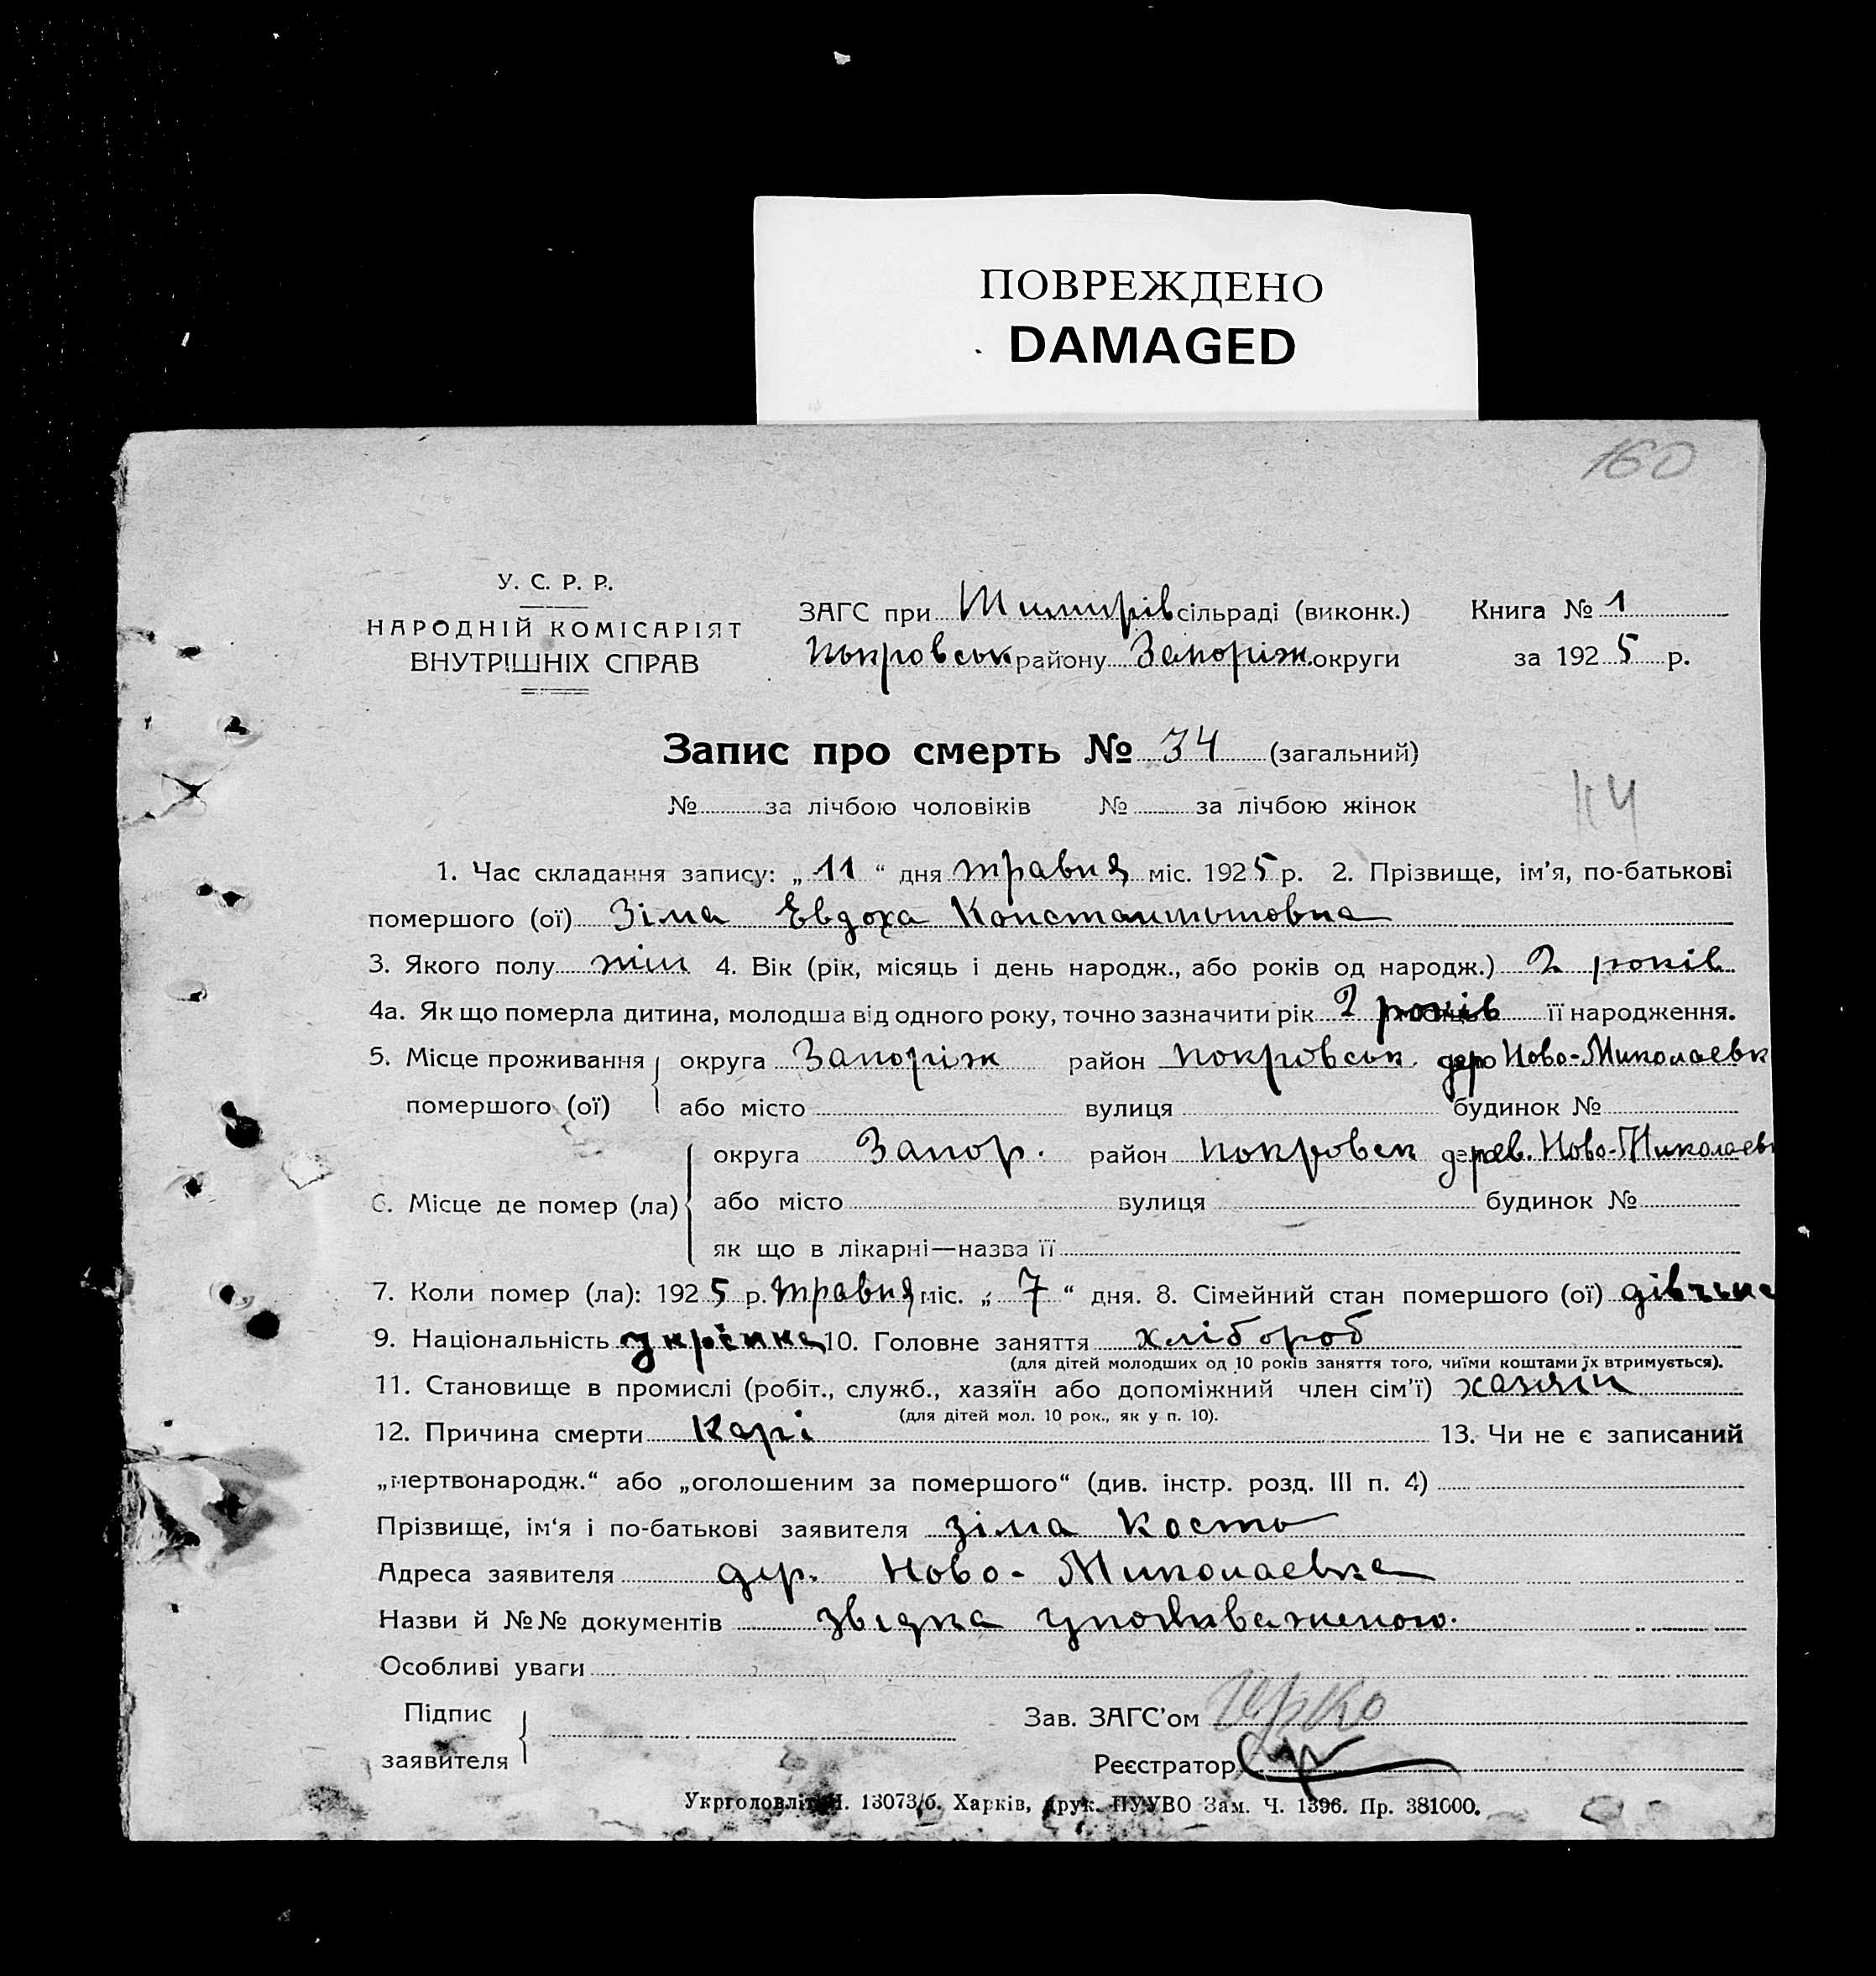 ПОВРЕЖДЕНО
DAMAGED
160
У. С. Р. Р.
НАРОДНІЙ КОМІСАРІЯТ
ВНУТРІШНІХ СПРАВ
ЗАГС при сільраді (виконк.) Книга № 1
Покровськ району Запоріж. округи за 1925 р.
Запис про смерть № 34 (загальний)
№ за лічбою чоловіків № за лічбою жінок
1. Час складання запису: „11“ дня травня міс. 1925 р. 2. Прізвище, ім'я, по-батькові
помершого (ої) Зіма Евдоха Константиновна
3. Якого полу жін 4. Вік (рік, місяць і день народж., або років од народж.) 2 років
4а. Як що померла дитина, молодша від одного року, точно зазначити рік 2 років її народження.
5. Місце проживання округа Запоріж район Покровськ дер Ново-Миколаевк
помершого (ої) або місто вулиця будинок №
округа Запор. район Покровск дерев. Ново-Миколаевк
6. Місце де помер (ла) або місто вулиця будинок №
як що в лікарні—назва її
7. Коли помер (ла): 1925 р. травня міс. „7“ дня. 8. Сімейний стан помершого (ої) дівчина
9. Національність укрїнка 10. Головне заняття хлібороб
(для дітей молодших од 10 років заняття того, чиїми коштами їх втримується).
11. Становище в промислі (робіт., служб., хазяїн або допоміжний член сім'ї) хазяїн
(для дітей мол. 10 рок., як у п. 10).
12. Причина смерти Карі 13. Чи не є записаний
„мертвонародж.“ або „оголошеним за помершого“ (див. інстр. розд. III п. 4)
Прізвище, ім'я і по-батькові заявителя Зіма Кость
Адреса заявителя дер. Ново-Миколаевка
Назви й №№ документів звідка уповноваженого.
Особливі уваги
Підпис
заявителя
Зав. ЗАГС'ом
Реєстратор
Укрголовліт Ч. 13073/б. Харків, друк. ПУУВО Зам. Ч. 1396. Пр. 381000.